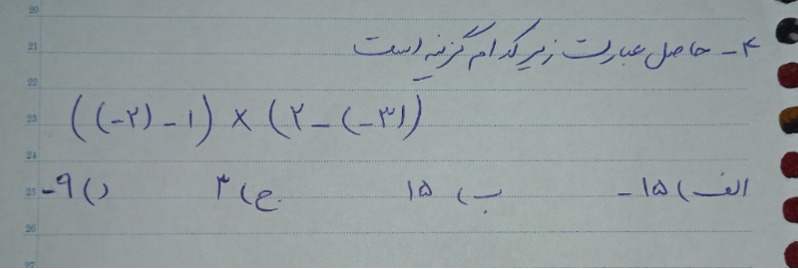 ۴- حاصل عبارت زیر کدام گزینه است
((-۲) - ۱) × (۲ - (-۳))
الف) ۱۵- ب) ۱۵ ج) ۳ د) ۹-
20
21
22
23
24
25
26
27